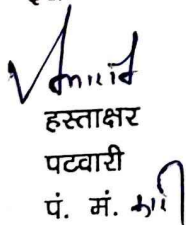 हस्ताक्षर
पटवारी
पं. मं.